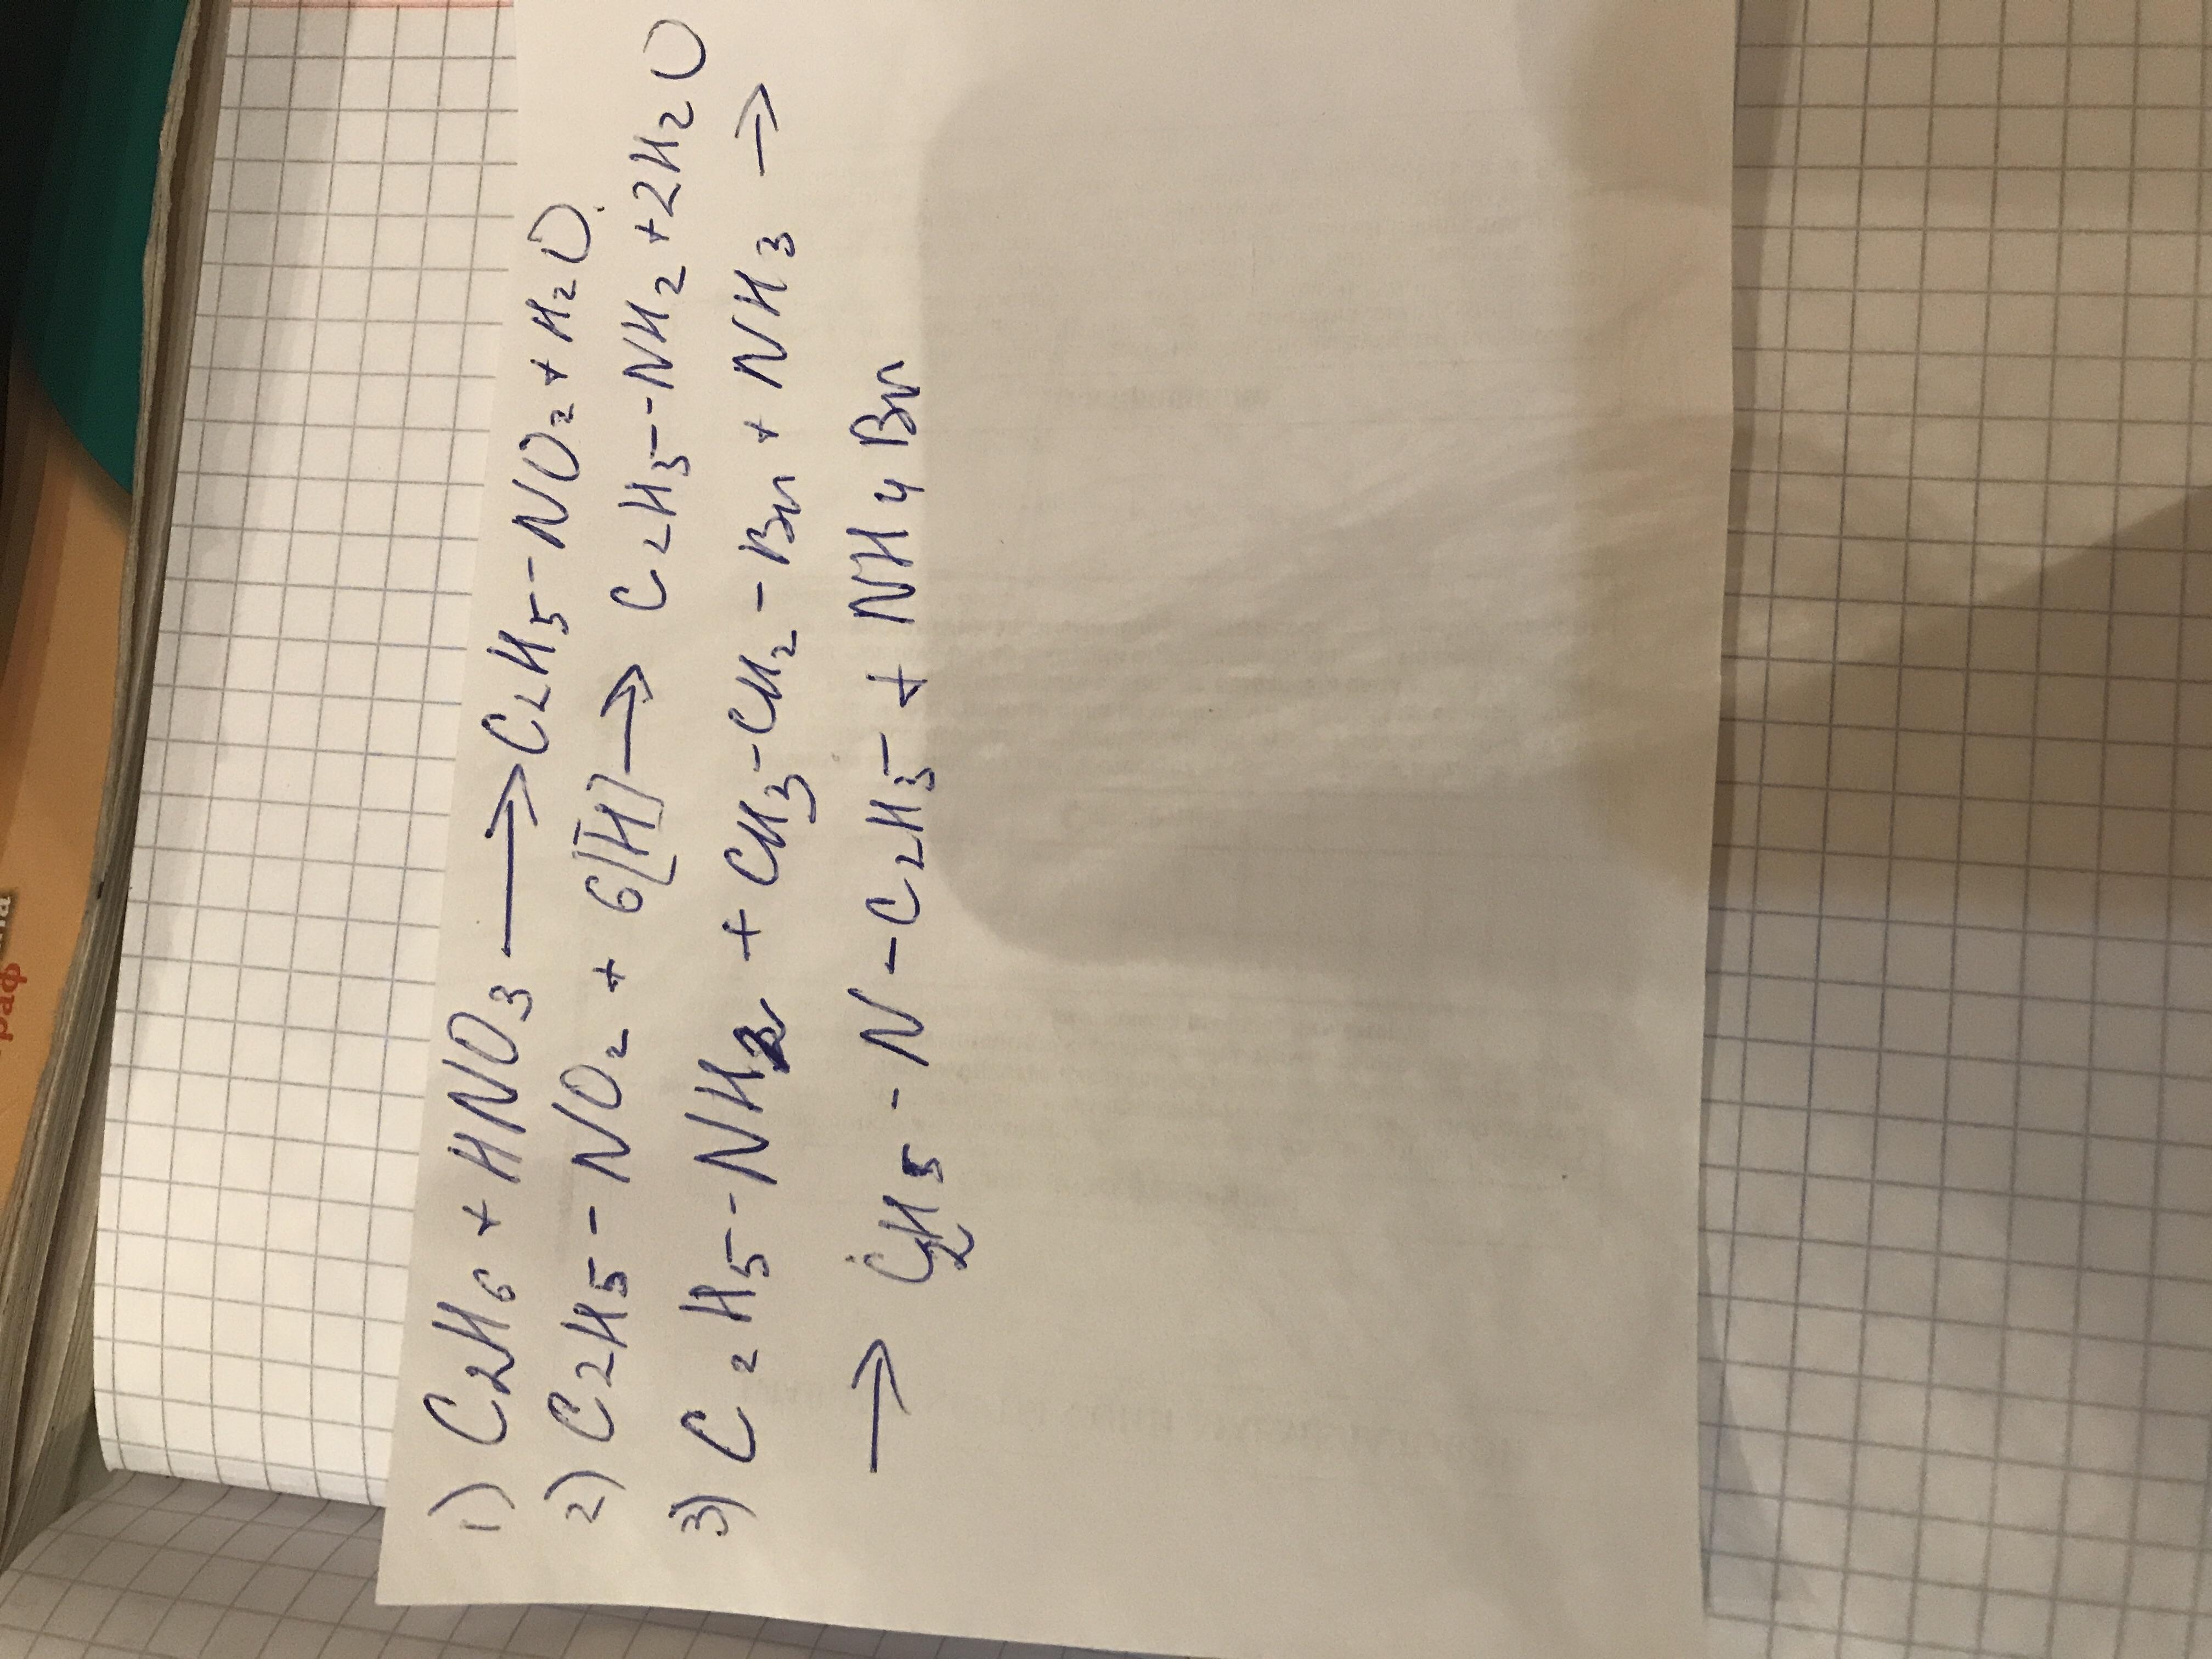 1) C2H6 + HNO3 → C2H5-NO2 + H2O
2) C2H5-NO2 + 6[H] → C2H5-NH2 + 2H2O
3) C2H5-NH2 + CH3-CH2-Br + NH3 →
→ C2H5-N-C2H5 + NH4Br
раф